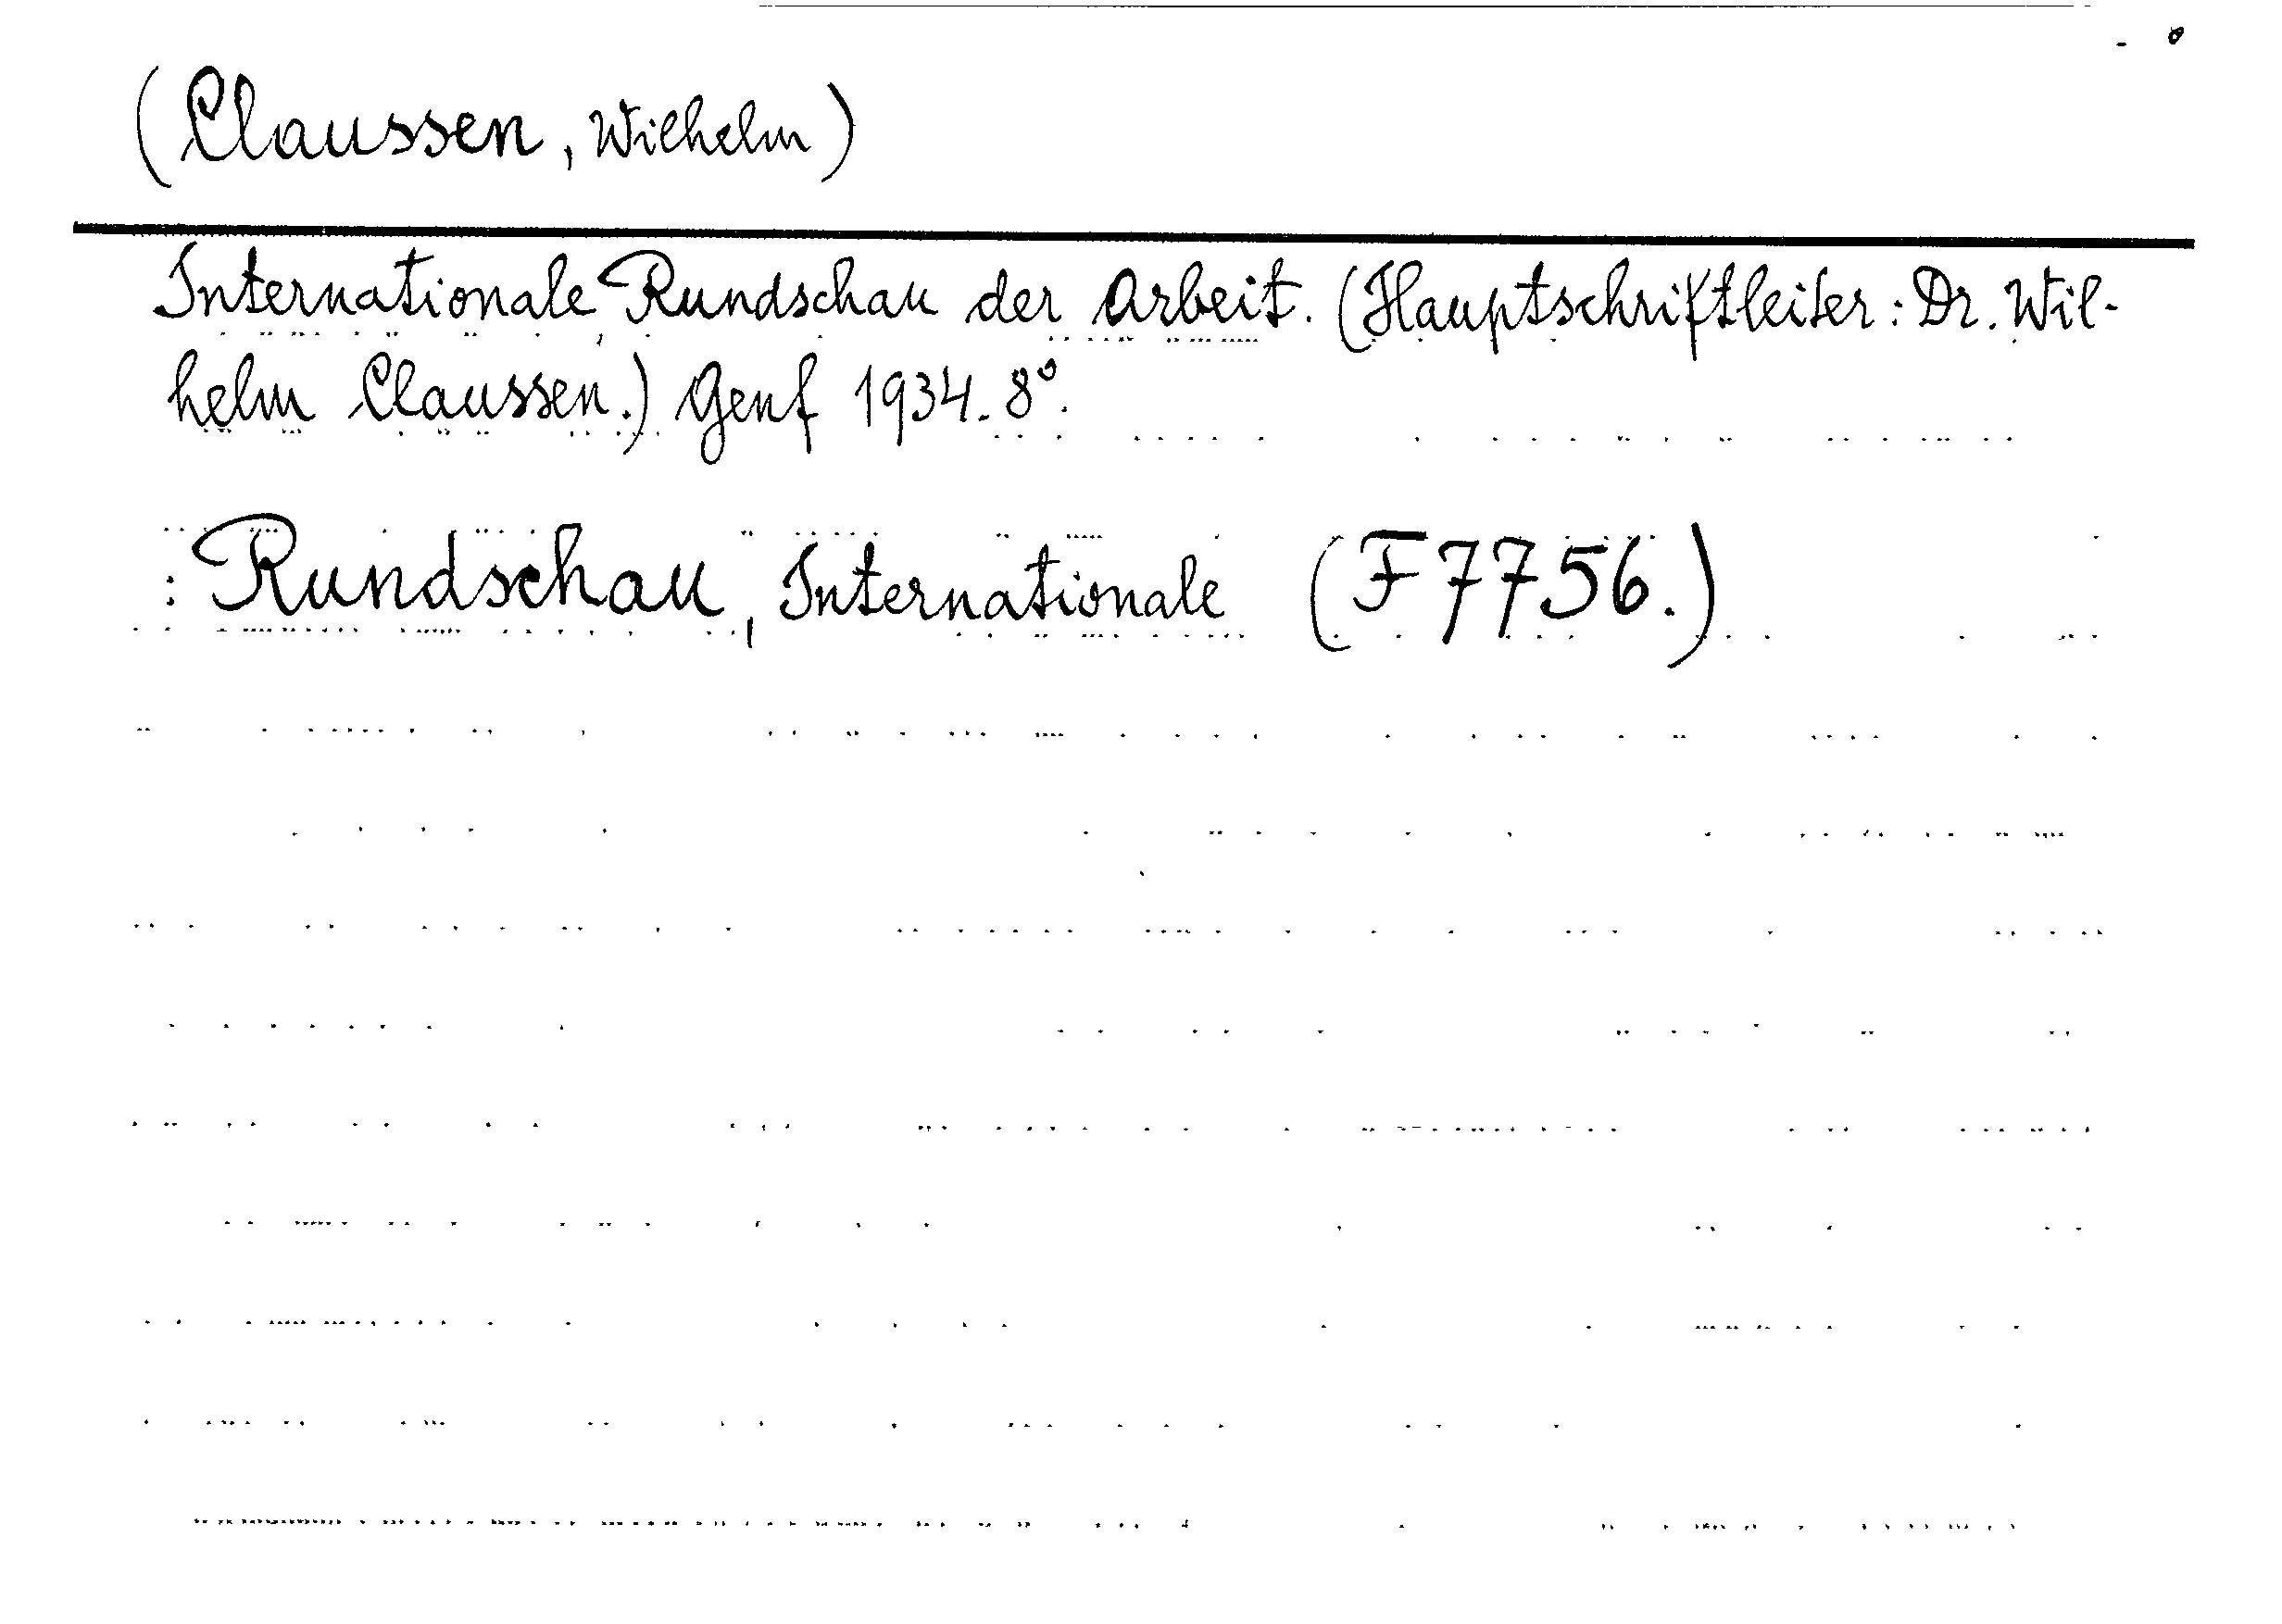 (Claussen, Wilhelm)
Internationale Rundschau der Arbeit. (Hauptschriftleiter: Dr. Wil-
helm Claussen.) Genf 1934. 8°.
: Rundschau, Internationale (F 7756.)